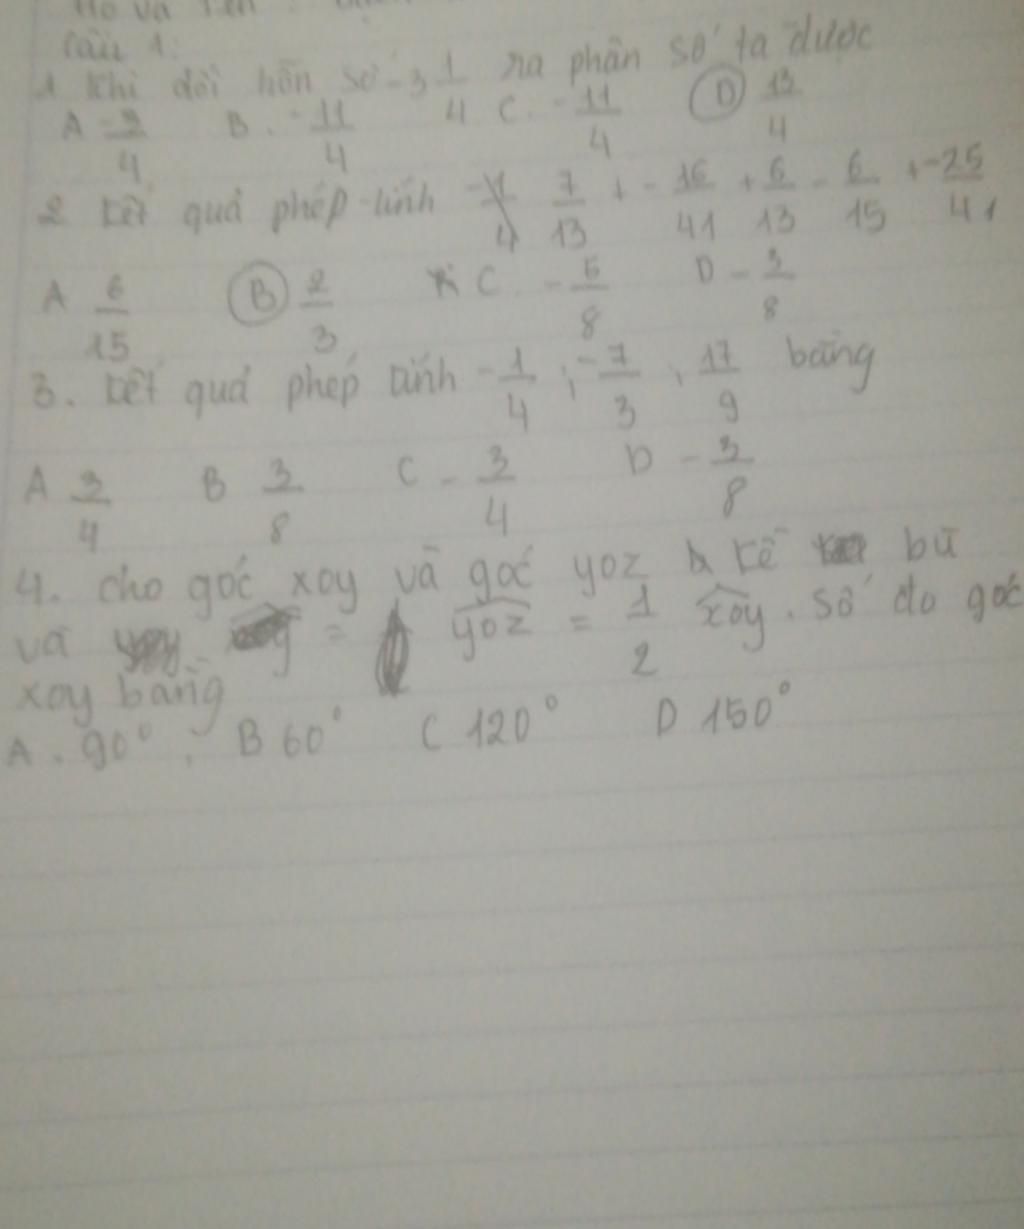 Họ và Tên :
Câu 1:
1 Khi dổi hỗn số -3 1/4 ra phân số ta dược
A -3/4 B. -11/4 C. -11/4 D 13/4
2 Kết quả phép tính 7/13 + -16/41 + 6/13 - 6/15 + -25/41
A 6/15 B 2/3 C. -5/8 D -3/8
3. Kết quả phép tính -1/4 : -7/3 . 17/9 bằng
A 3/4 B 3/8 C -3/4 D -3/8
4. cho góc xoy và góc yoz kề bù
và = yoz = 1/2 xoy. số do góc
xoy bằng
A. 90° B 60° C 120° D 150°